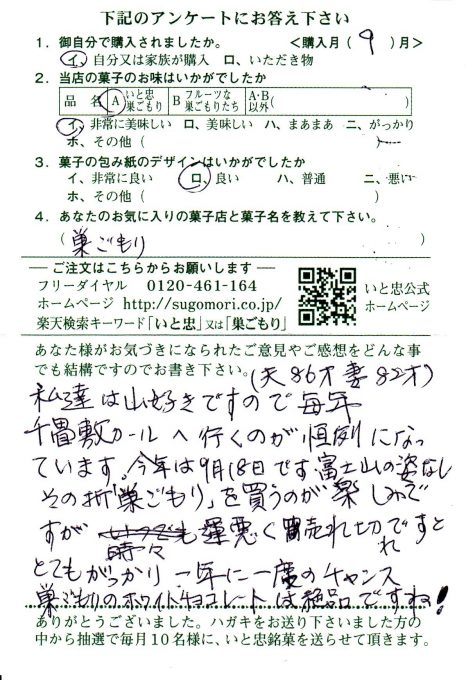 下記のアンケートにお答え下さい
1. 御自分で購入されましたか。 <購入月( 9 )月>
イ、自分又は家族が購入 ロ、いただき物
2. 当店の菓子のお味はいかがでしたか
品 名 A いと忠巣ごもり B フルーツな巣ごもりたち A・B以外( )
イ、非常に美味しい ロ、美味しい ハ、まあまあ ニ、がっかり
ホ、その他( )
3. 菓子の包み紙のデザインはいかがでしたか
イ、非常に良い ロ、良い ハ、普通 ニ、悪い
ホ、その他( )
4. あなたのお気に入りの菓子店と菓子名を教えて下さい。
( 巣ごもり )
ご注文はこちらからお願いします
フリーダイヤル 0120-461-164
ホームページ http://sugomori.co.jp/
楽天検索キーワード「いと忠」又は「巣ごもり」
いと忠公式
ホームページ
あなた様がお気づきになられたご意見やご感想をどんな事
でも結構ですのでお書き下さい。(夫86才 妻82才)
私達は山好きですので毎年
千畳敷カールへ行くのが恒例になっ
ています。今年は9月18日です富士山の姿なし
その折「巣ごもり」を買うのが楽しみで
すが 時々も運悪く売れ切れですと
とてもがっかり 一年に一度のチャンス
巣ごもりのホワイトチョコレートは絶品ですね!
ありがとうございました。ハガキをお送り下さいました方の
中から抽選で毎月10名様に、いと忠銘菓を送らせて頂きます。